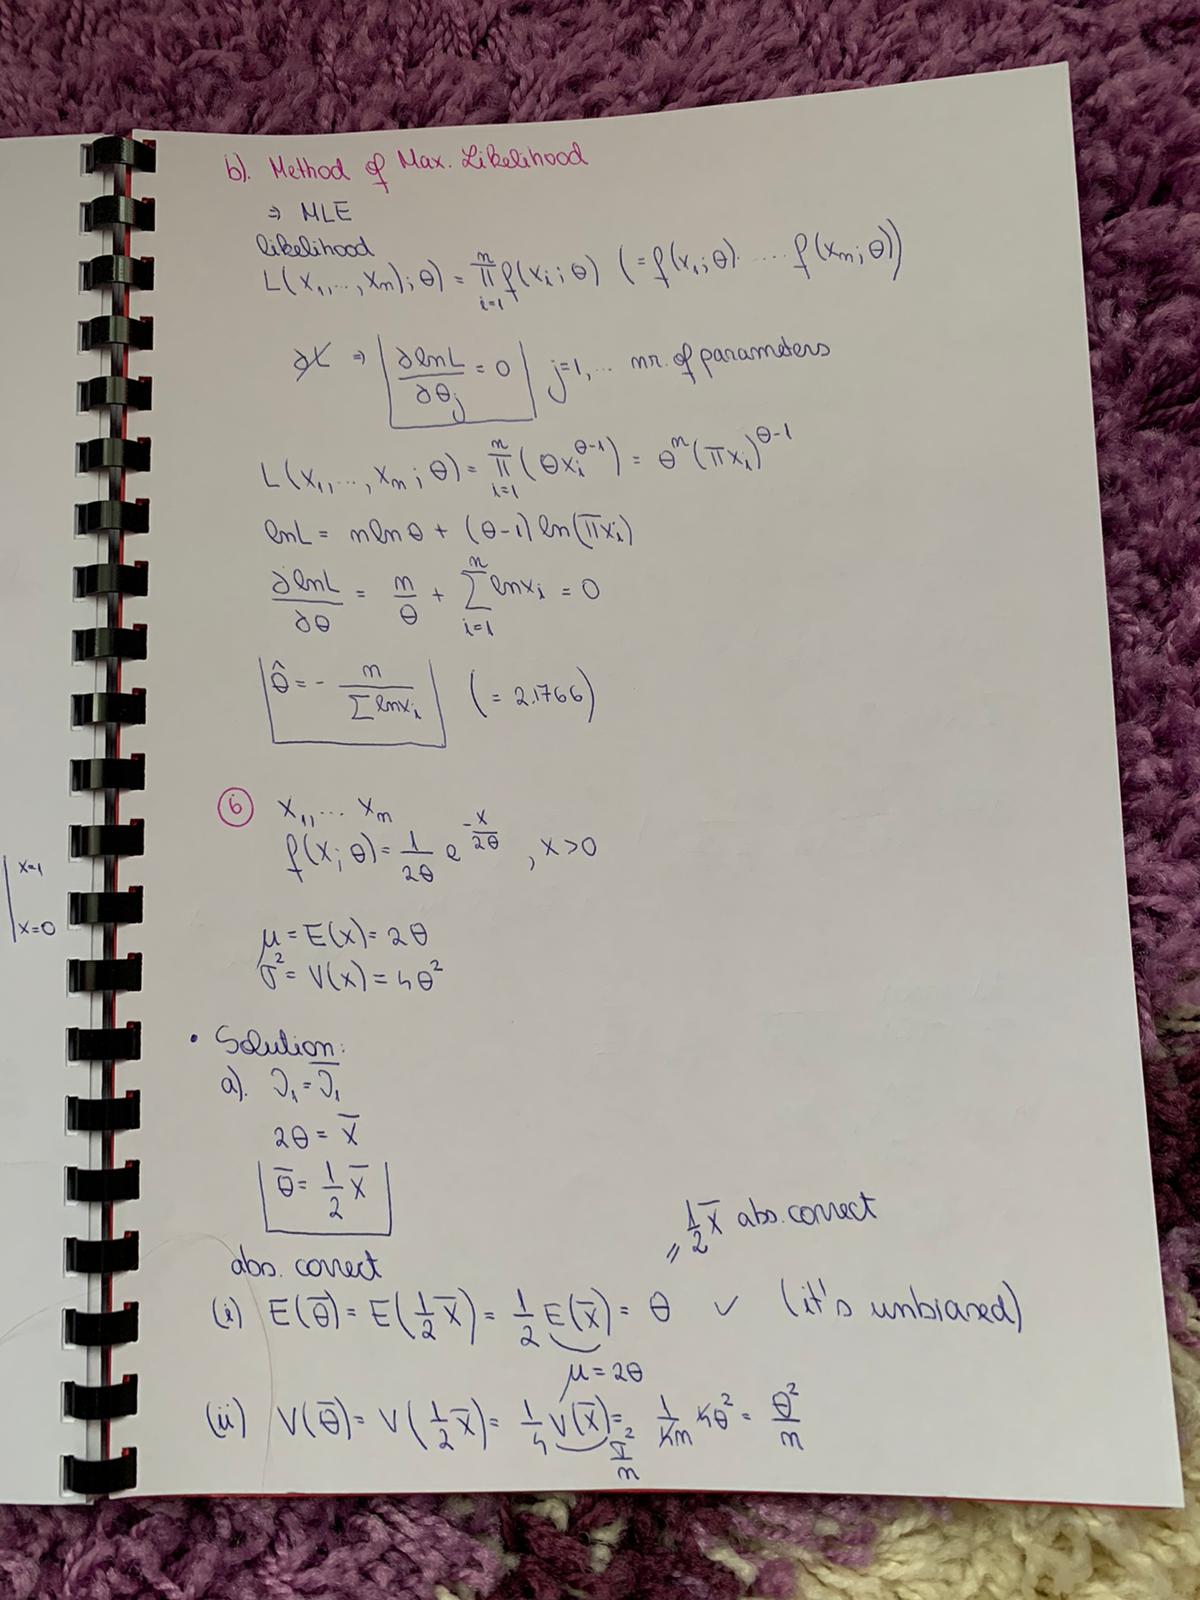 b). Method of Max. Likelihood
⇒ MLE
likelihood
L(x₁,..., xₙ); θ) = ∏ᵢ₌₁ⁿ f(xᵢ; θ) (= f(x₁; θ) · .... f(xₙ; θ))
⇒ ∂lnL/∂θⱼ = 0 j=1,... nr. of parameters
L(x₁,..., xₙ; θ) = ∏ᵢ₌₁ⁿ (θxᵢ^(θ-1)) = θⁿ(∏xᵢ)^(θ-1)
lnL = n lnθ + (θ-1) ln(∏xᵢ)
∂lnL/∂θ = n/θ + ∑ᵢ₌₁ⁿ lnxᵢ = 0
θ̂ = - n/∑lnxᵢ (= 2.1766)
6 x₁,... xₙ
f(x; θ) = 1/2θ e^(-x/2θ) , x>0
x=1
μ = E(x) = 2θ
x=0
σ² = V(x) = 4θ²
• Solution:
a). ν₁ = ν̄₁
2θ = x̄
θ̄ = 1/2 x̄
= 1/2 x̄ abs. correct
abs. correct
(i) E(θ̄) = E(1/2 x̄) = 1/2 E(x̄) = θ ✓ (it's unbiased)
μ = 2θ
(ii) V(θ̄) = V(1/2 x̄) = 1/4 V(x̄) = 1/4n 4θ² = θ²/n
σ²/n